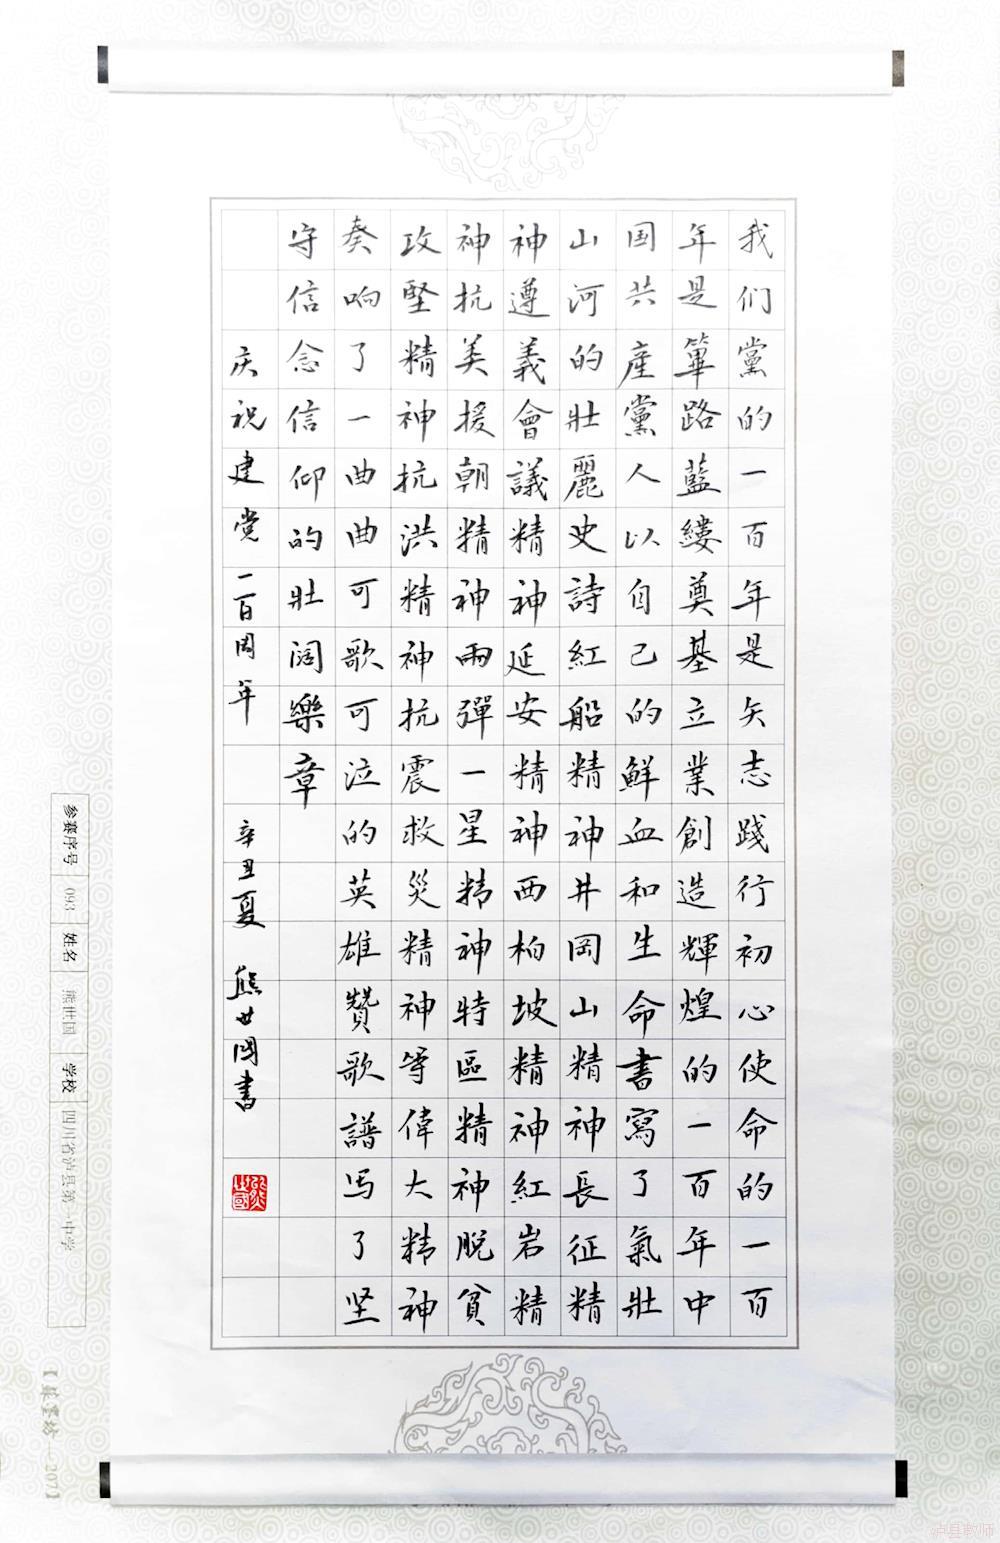 我们黨的一百年是矢志践行初心使命的一百
年是篳路藍縷奠基立業創造輝煌的一百年中
国共產黨人以自己的鮮血和生命書寫了氣壯
山河的壯麗史詩紅船精神井岡山精神長征精
神遵義會議精神延安精神西柏坡精神紅岩精
神抗美援朝精神兩彈一星精神特區精神脫貧
攻堅精神抗洪精神抗震救災精神等偉大精神
奏响了一曲曲可歌可泣的英雄贊歌譜写了坚
守信念信仰的壯闊樂章
庆祝建党一百周年 辛丑夏 熊世國書
参赛序号 093 姓名 熊世国 学校 四川省泸县第一中学
泸县教师